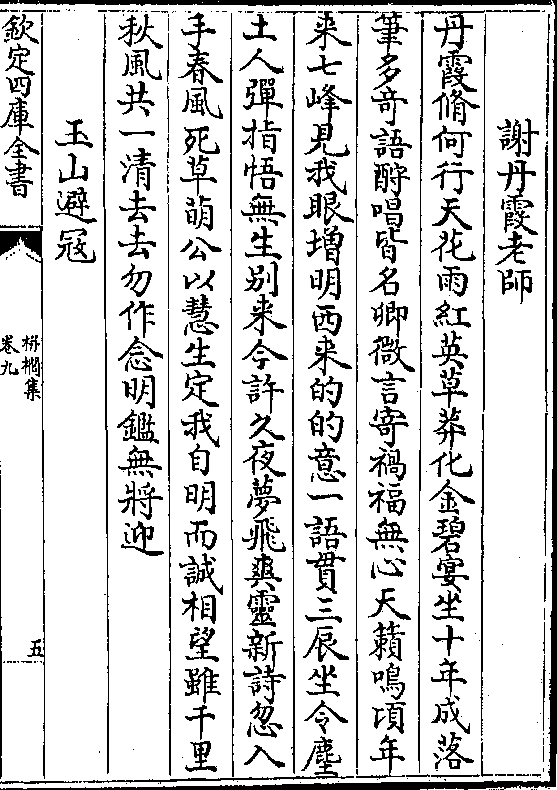 謝丹霞老師
丹霞脩何行天花雨紅英草莽化金碧宴坐十年成落
筆多奇語酧唱皆名卿微言寄禍福無心天籟鳴頃年
来七峰見我眼增明西来的的意一語貫三辰坐令塵
土人彈指悟無生别来今許久夜夢飛爽靈新詩忽入
手春風死草萌公以慧生定我自明而誠相望雖千里
秋風共一清去去勿作念明鑑無將迎
玉山避冦
欽定四庫全書
栟櫚集
卷九
五